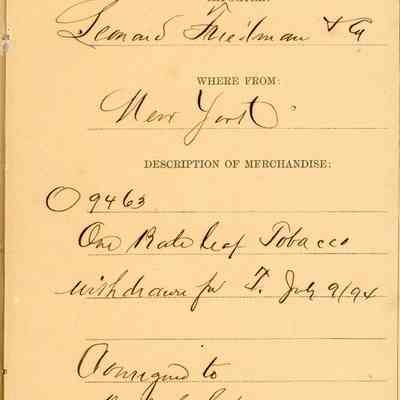 Leonard Friedman & Co
WHERE FROM:
New York
DESCRIPTION OF MERCHANDISE:
O 9463
One Bale Leaf Tobacco
withdrawn for T. July 9/94
Consigned to